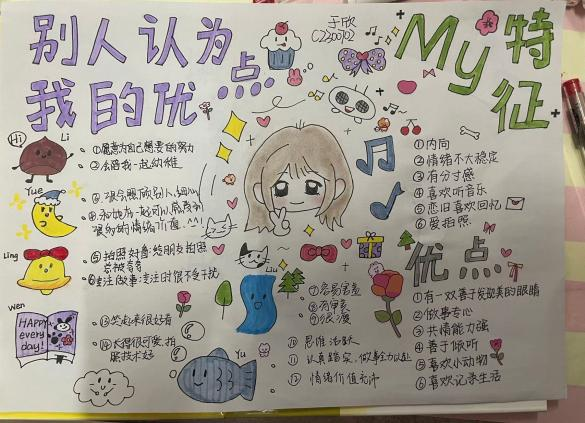 别人认为
我的优点
于欣
C2300102
My特征
Hi
Li
①愿意为自己想要的努力
②会陪我一起幼稚
Yue
③很会照顾别人,细心
④和她为一起可以感受到
很多的情绪价值 ^^
Ling
⑤拍照好看,给朋友拍照
总被夸夸
⑥专注做事,专注时很会干扰
①内向
②情绪不大稳定
③有分寸感
④喜欢听音乐
⑤恋旧喜欢回忆
⑥爱拍照
Liu
⑦容易害羞
⑧有审美
⑨浪漫
优点
①有一双善于发现美的眼睛
②做事专心
③共情能力强
④善于倾听
⑤喜欢小动物
⑥喜欢记录生活
Wen
HAPPY
every
day!
⑬笑起来很好看
⑭长得很可爱,拍
照技术好
Yu
⑩思维活跃
⑪认真踏实,做事全力以赴
⑫情绪价值充沛